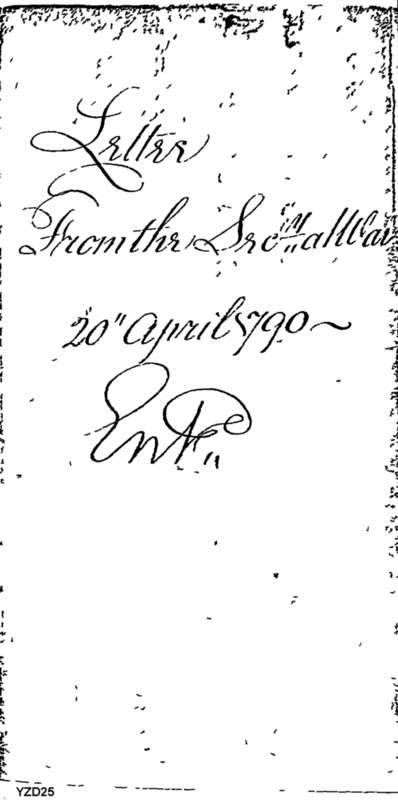 Letter
From the Secry at War
20" April 1790
Entd
YZD25